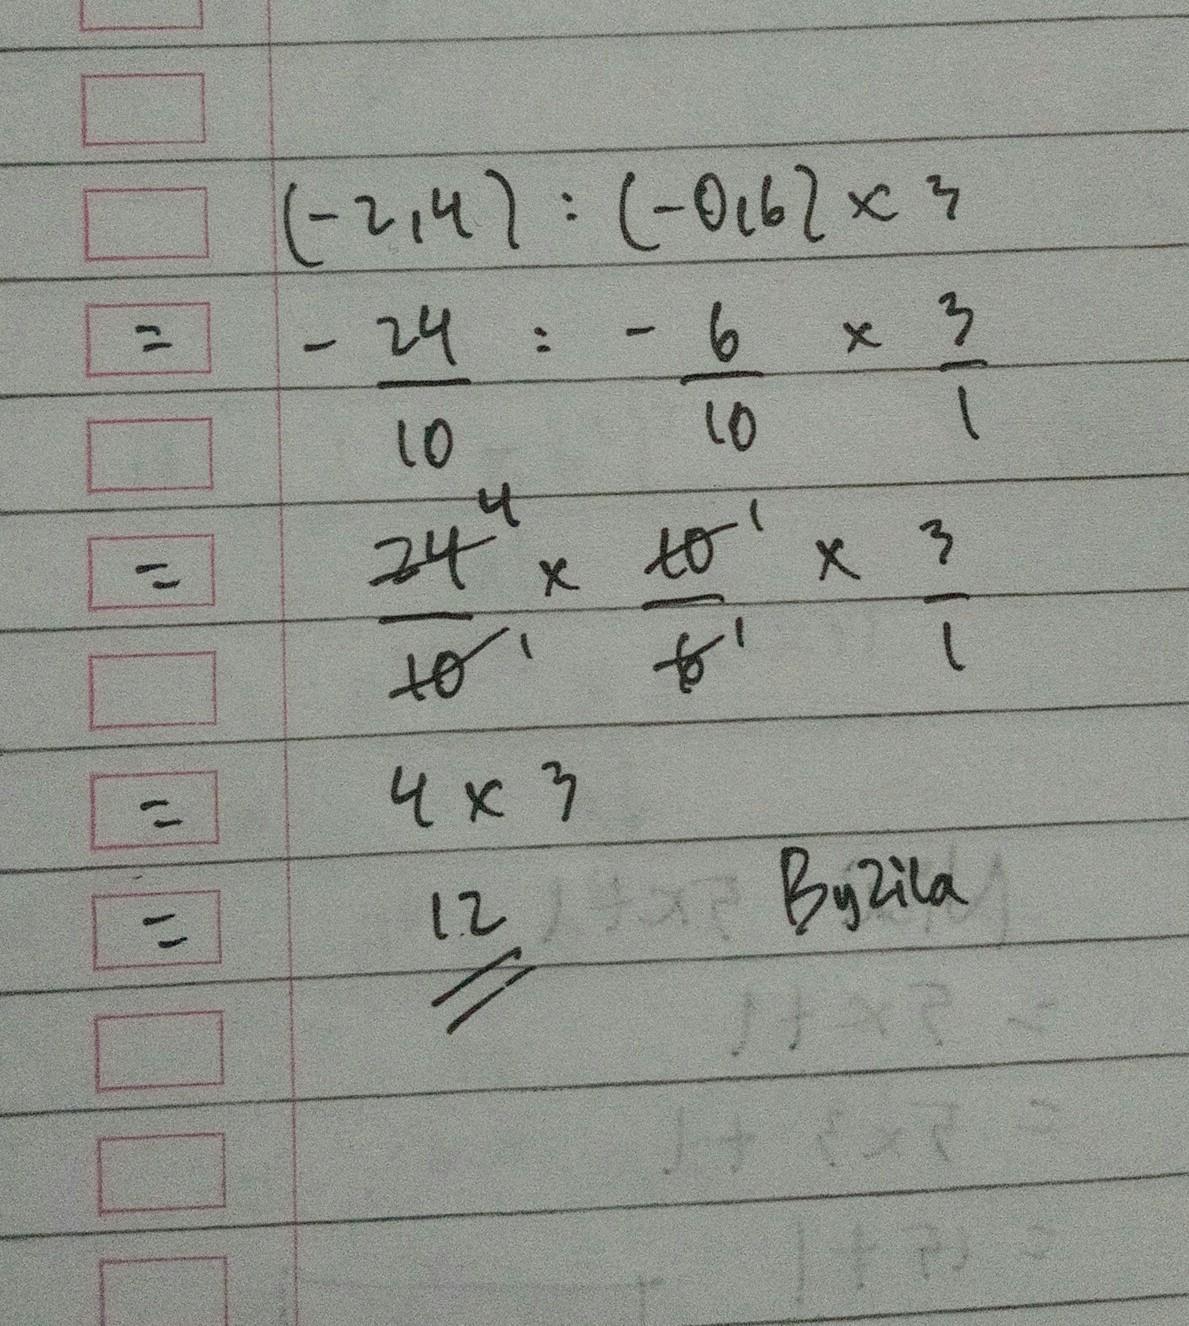 (-2,4) : (-0,6) x 3
= - 24/10 : - 6/10 x 3/1
= 24 4/10 1 x 10 1/6 1 x 3/1
= 4 x 3
= 12
By Zila